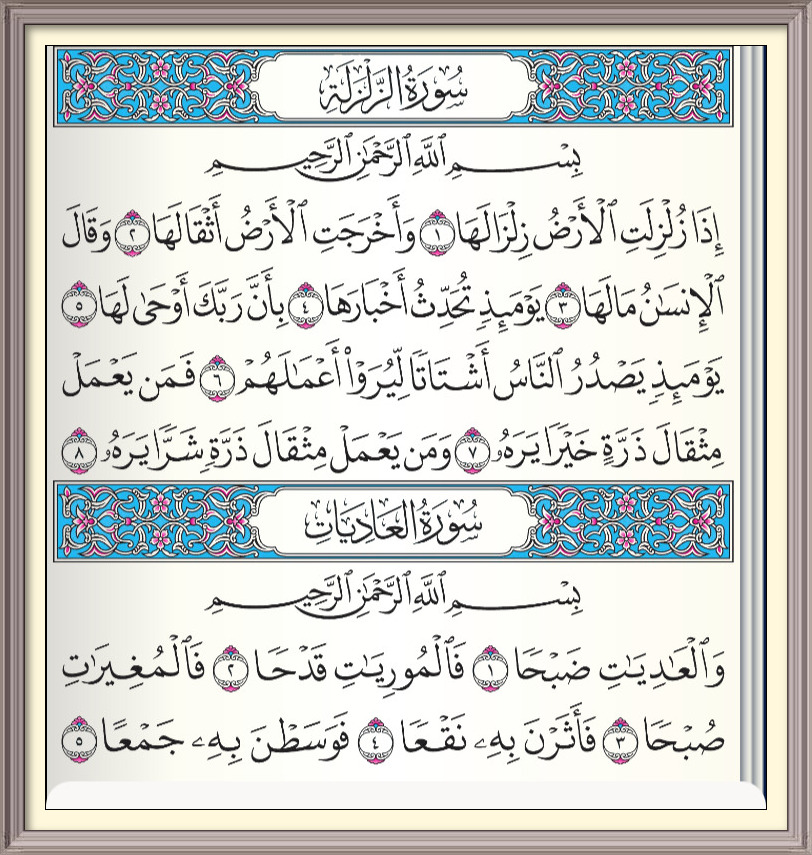 سُورَةُ الزَّلْزَلَةِ
بِسْمِ ٱللَّهِ ٱلرَّحْمَٰنِ ٱلرَّحِيمِ
إِذَا زُلْزِلَتِ ٱلْأَرْضُ زِلْزَالَهَا ١ وَأَخْرَجَتِ ٱلْأَرْضُ أَثْقَالَهَا ٢ وَقَالَ
ٱلْإِنسَٰنُ مَا لَهَا ٣ يَوْمَئِذٍ تُحَدِّثُ أَخْبَارَهَا ٤ بِأَنَّ رَبَّكَ أَوْحَىٰ لَهَا ٥
يَوْمَئِذٍ يَصْدُرُ ٱلنَّاسُ أَشْتَاتًا لِّيُرَوْا۟ أَعْمَٰلَهُمْ ٦ فَمَن يَعْمَلْ
مِثْقَالَ ذَرَّةٍ خَيْرًا يَرَهُۥ ٧ وَمَن يَعْمَلْ مِثْقَالَ ذَرَّةٍ شَرًّا يَرَهُۥ ٨
سُورَةُ العَادِيَاتِ
بِسْمِ ٱللَّهِ ٱلرَّحْمَٰنِ ٱلرَّحِيمِ
وَٱلْعَٰدِيَٰتِ ضَبْحًا ١ فَٱلْمُورِيَٰتِ قَدْحًا ٢ فَٱلْمُغِيرَٰتِ
صُبْحًا ٣ فَأَثَرْنَ بِهِۦ نَقْعًا ٤ فَوَسَطْنَ بِهِۦ جَمْعًا ٥